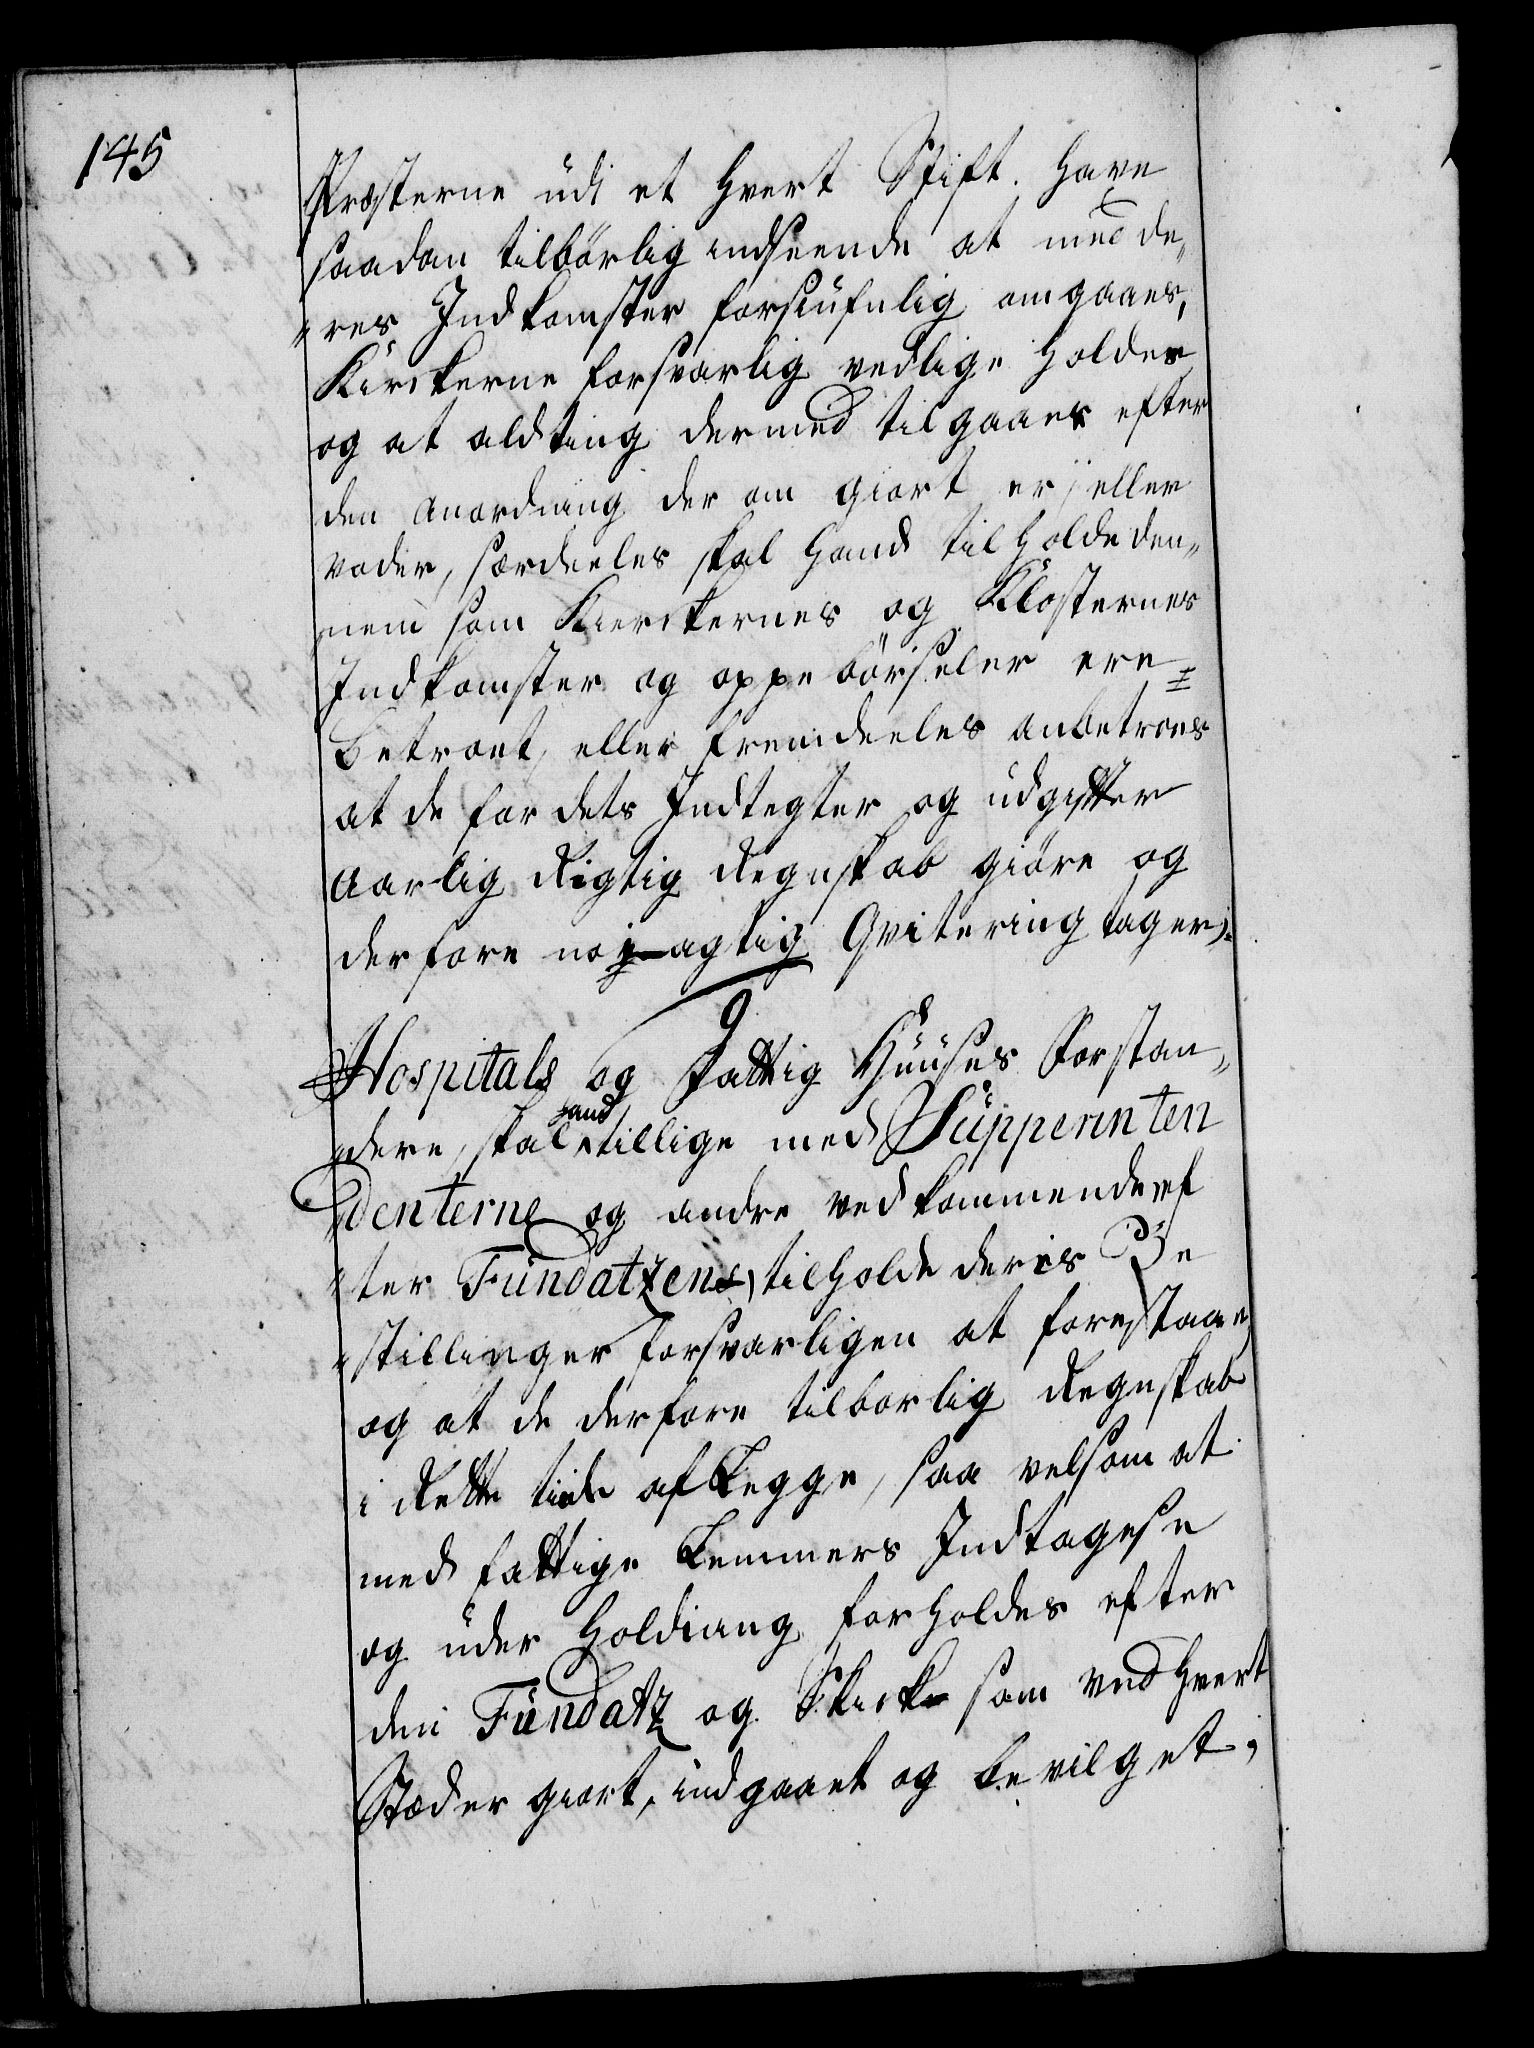 145
Præsterne udi et hvert Stift. have
saadan tilbørlig indseende at med de„
„res Indkomster forsiufnlig omgaaes,
Kirckerne forsvarlig vedlige holdes
og at aldting dermed tilgaaes efter
den Anordning der om giort er, eller
vorder, særdeeles skal hand tilholde den„
nem som Kierckernes og Klosternes
Indkomster og oppebörseler ere
betroet, eller fremdeeles anbetroes
at de for dets Indtegter og udgifter
Aarlig Rigtig Regnskab giöre og
derfore nojagtig Qvitering tager,
9
Hospitals og Fattig Huuses Forstan„
„dere, skal hand tillige med Supperinten
„denterne og andre vedkommende ef
„ter Fundatzens, tilholde deris Be
„stillinger forsvarligen at forestaae,
og at de derfore tilborlig Regnskab
i Rette tiide aflegge, saa velsom at
med fattige Lemmers Indtagese
og under Holdning forholdes efter
den Fundatz og Skick som ved hvert
Stæder giort, indgaaet og bevilget,